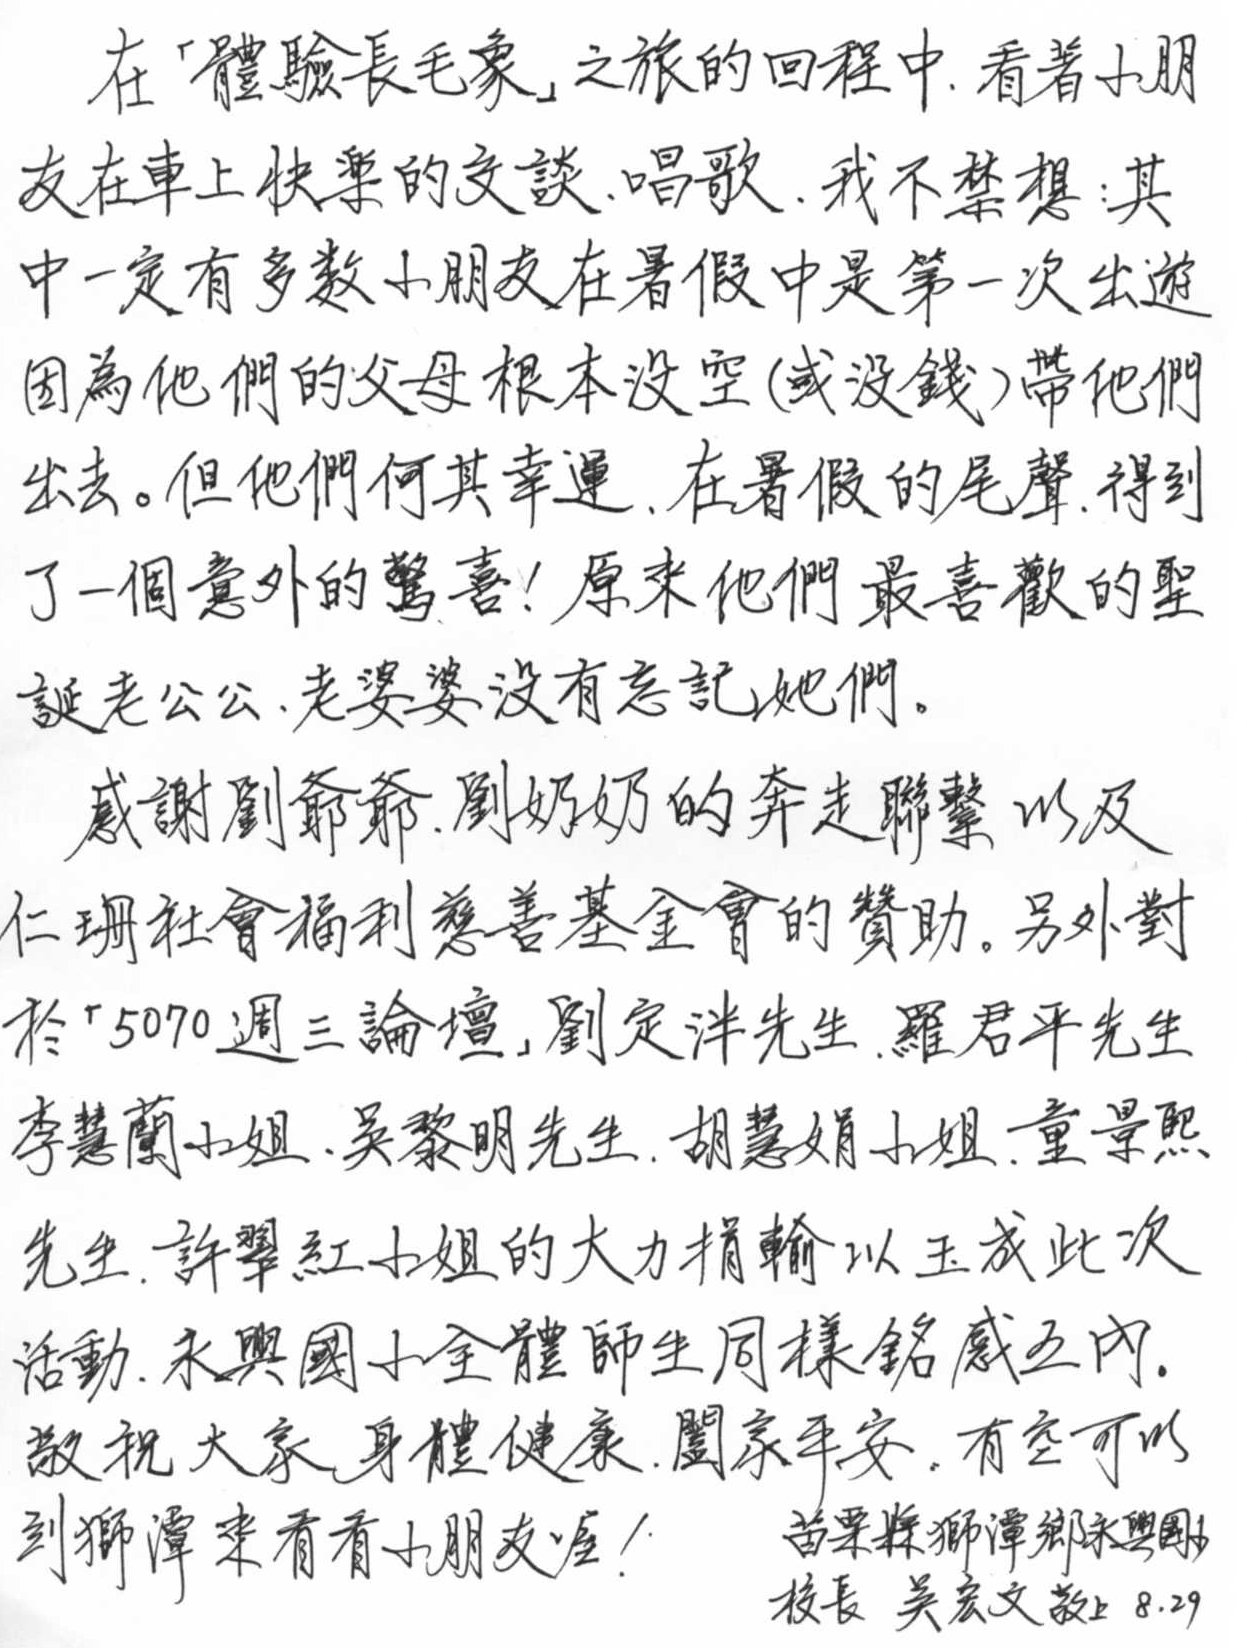 在「體驗長毛象」之旅的回程中、看著小朋
友在車上快樂的交談、唱歌、我不禁想:其
中一定有多数小朋友在暑假中是第一次出遊
因為他們的父母根本沒空(或沒錢)帶他們
出去。但他們何其幸運、在暑假的尾聲、得到
了一個意外的驚喜!原來他們最喜歡的聖
誕老公公、老婆婆沒有忘記她們。
感謝劉爺爺、劉奶奶的奔走聯繫以及
仁珊社會福利慈善基金會的贊助。另外對
於「5070週三論壇」劉定泮先生、羅君平先生
李慧蘭小姐、吳黎明先生、胡慧娟小姐、童景熙
先生、許翠紅小姐的大力捐輸以玉成此次
活動、永興國小全體師生同樣銘感五內。
敬祝大家身體健康、闔家平安。有空可以
到獅潭來看看小朋友喔!
苗栗縣獅潭鄉永興國小
校長 吳宏文敬上 8.29